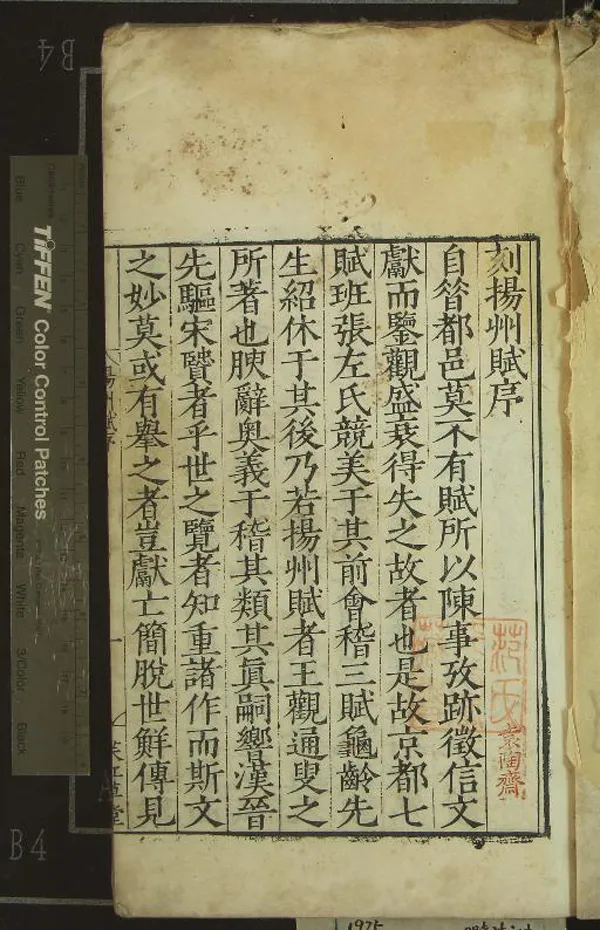 刻揚州賦序
自昔都邑莫不有賦所以陳事攷跡徵信文
獻而鑒觀盛衰得失之故者也是故京都七
賦班張左氏競美于其前會稽三賦龜齡先
生紹休于其後乃若揚州賦者王觀通叟之
所著也腴辭奧義于稽其類其真嗣響漢晉
先驅宋贒者乎世之覽者知重諸作而斯文
之妙莫或有舉之者豈獻亡簡脫世鮮傳見
揚州賦序
一
范氏
袁陶齋
B4
B4
TIFFEN Color Control Patches
Blue
Cyan
Green
Yellow
Red
Magenta
White
3/Color
Black
1975